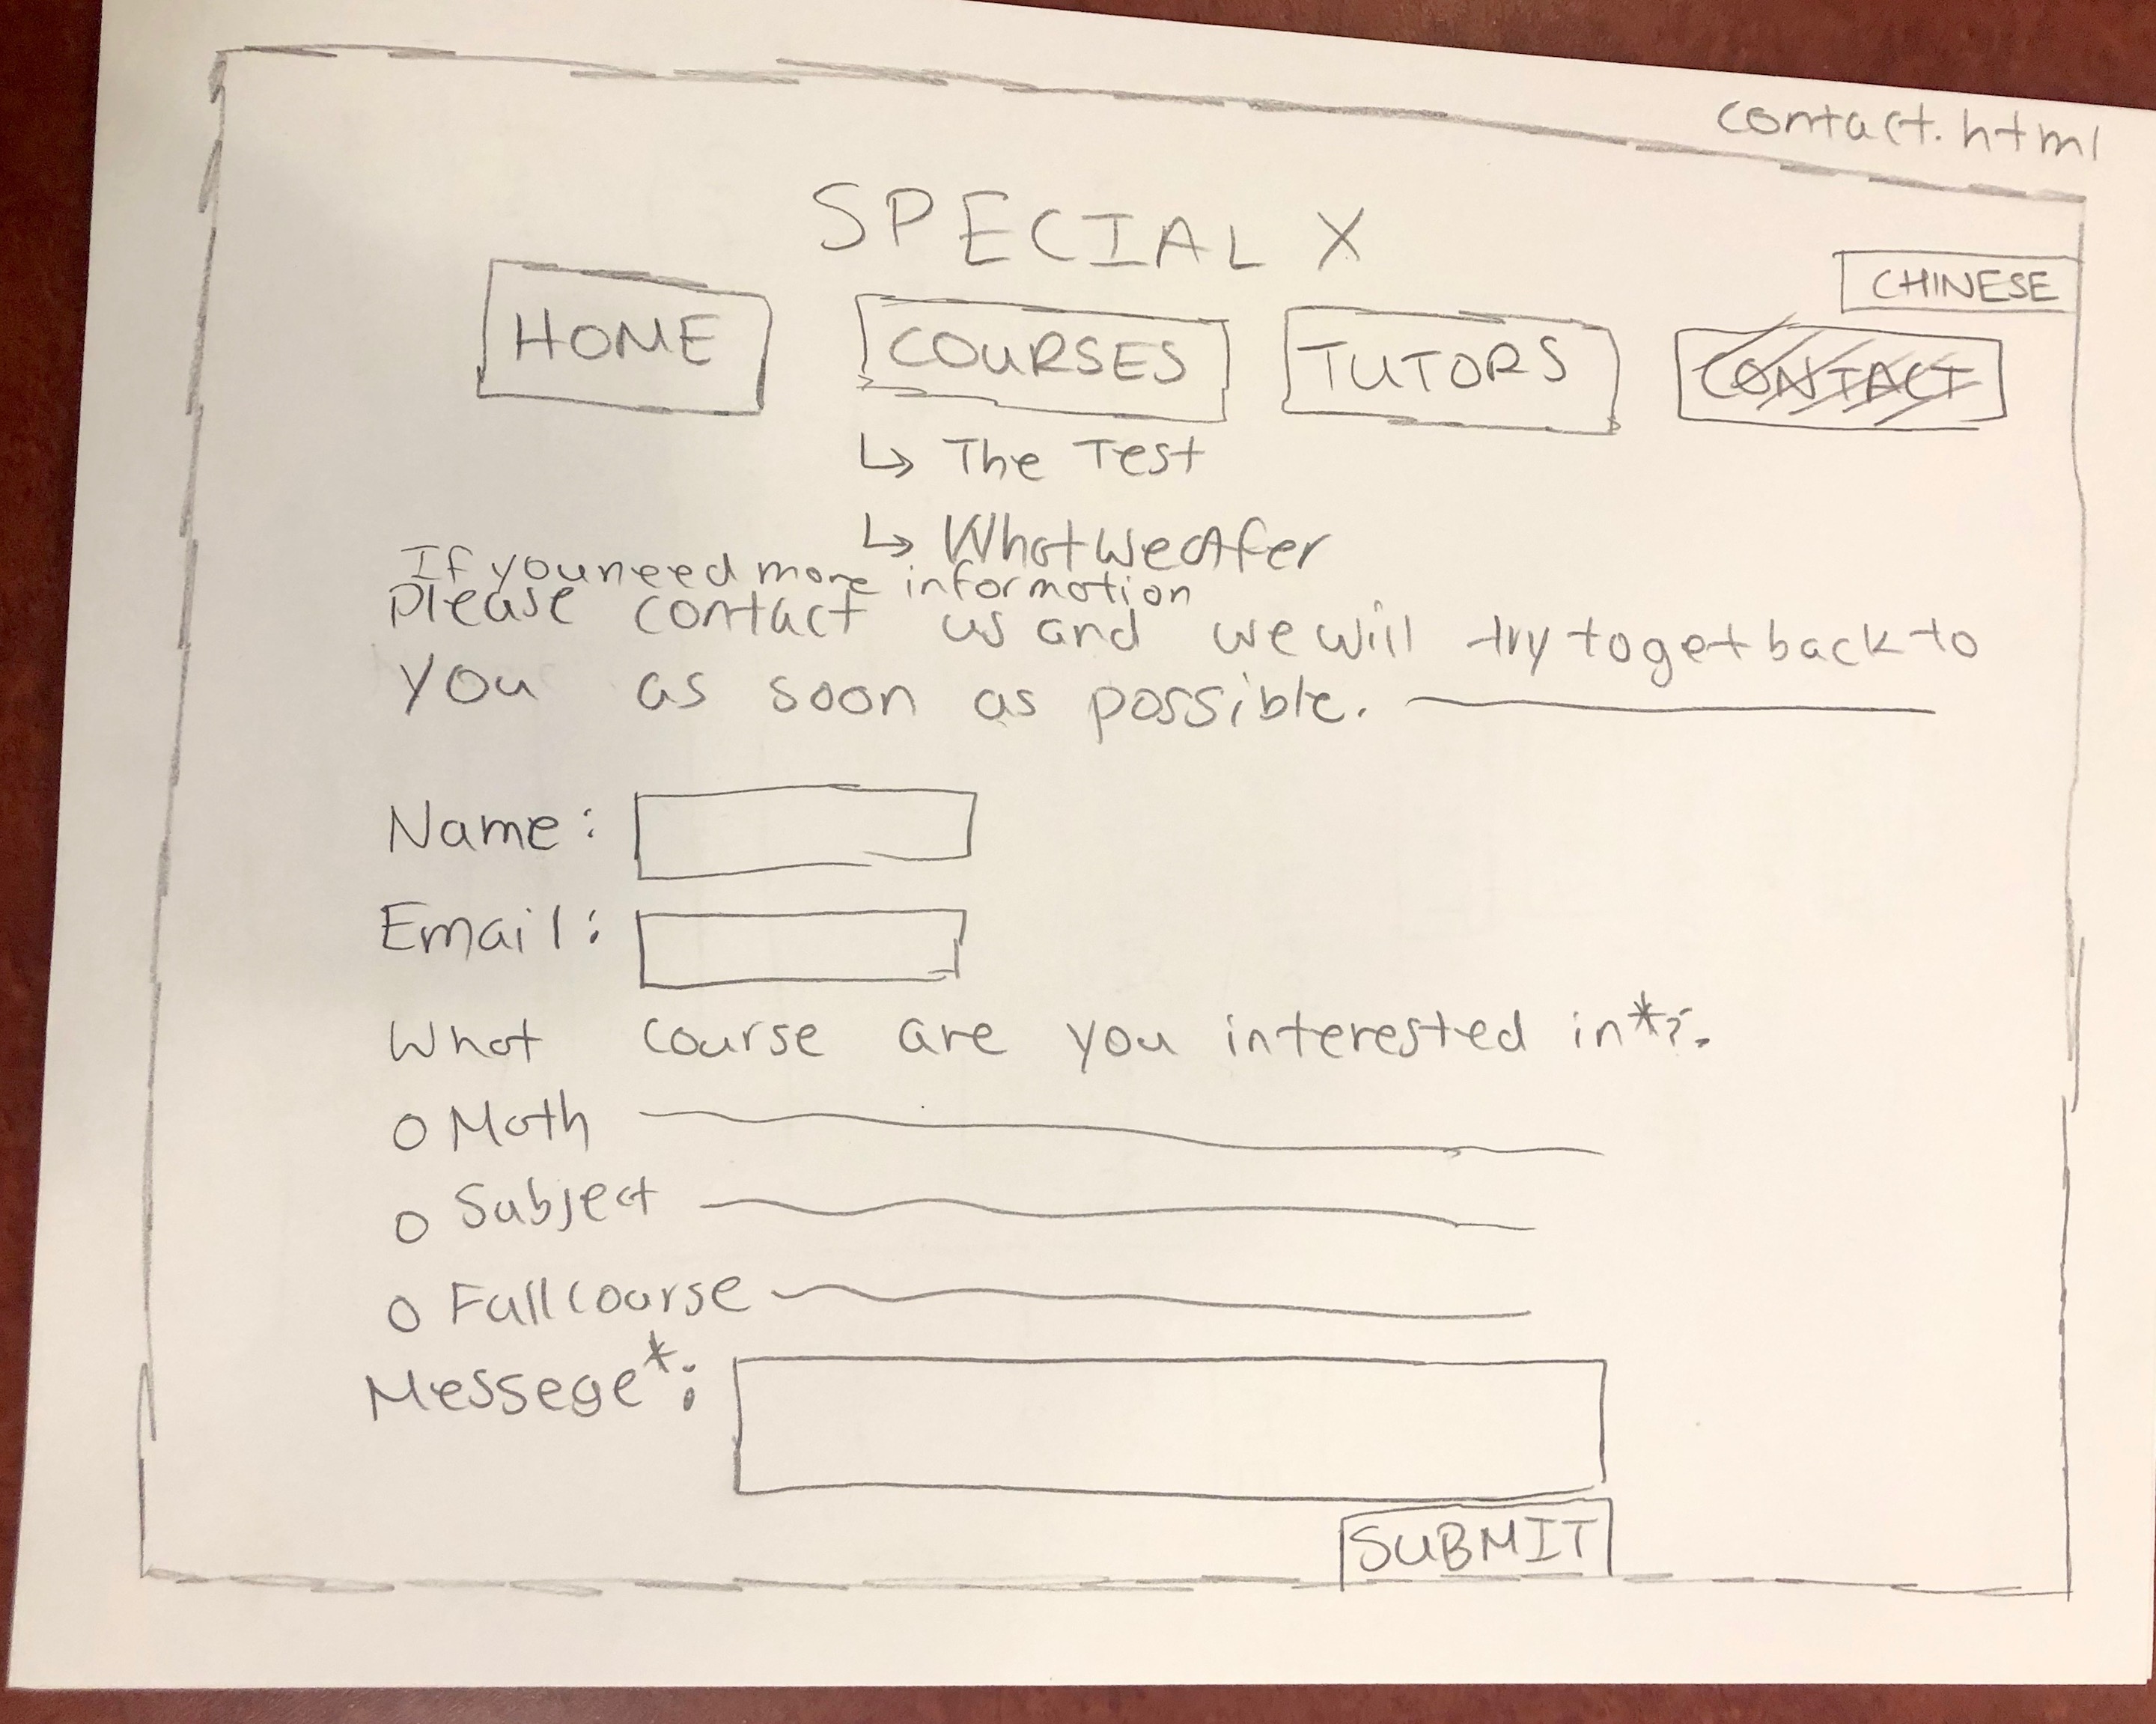 contact.html
SPECIAL X
CHINESE
HOME COURSES TUTORS CONTACT
↳ The Test
↳ What we offer
If you need more information
please contact us and we will try to get back to
you as soon as possible.
Name:
Email:
What course are you interested in*:
○ Math
○ Subject
○ Full course
Messege*:
SUBMIT